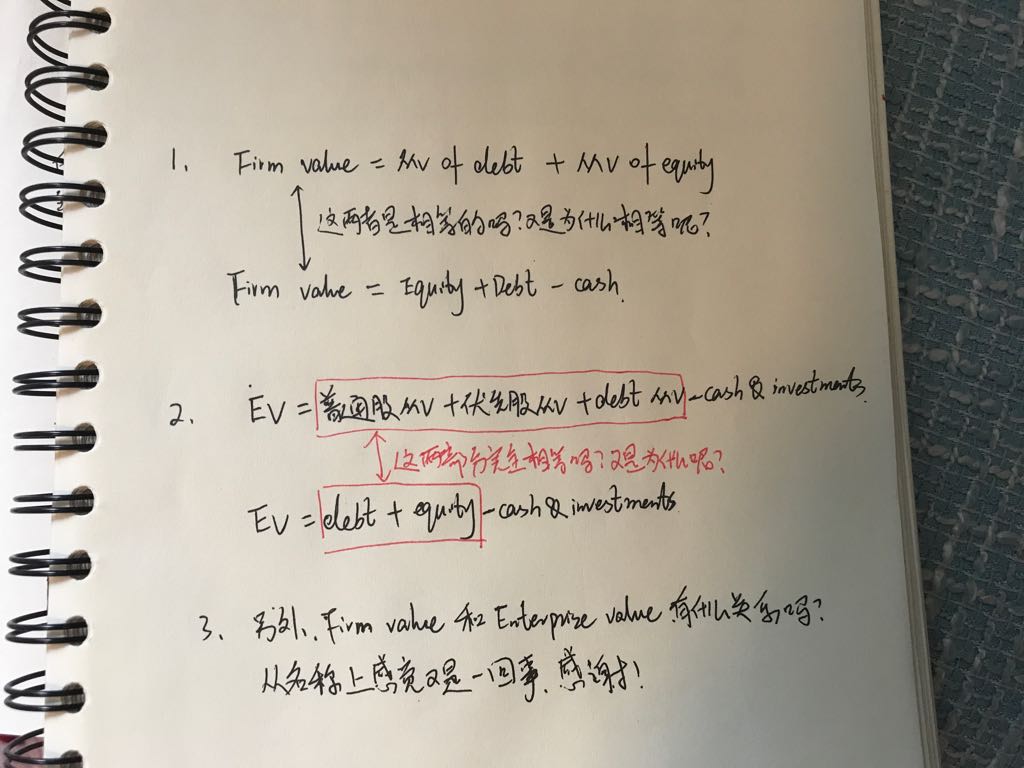 1. Firm value = MV of debt + MV of equity
这两者是相等的吗？又是为什么相等呢？
Firm value = Equity + Debt - cash.
2. EV = 普通股MV + 优先股MV + debt MV - cash & investments.
这两部分完全相等吗？又是为什么呢？
EV = debt + equity - cash & investments.
3. 另外、Firm value 和 Enterprize value 有什么关系吗？
从名称上感觉又是一回事、感谢！